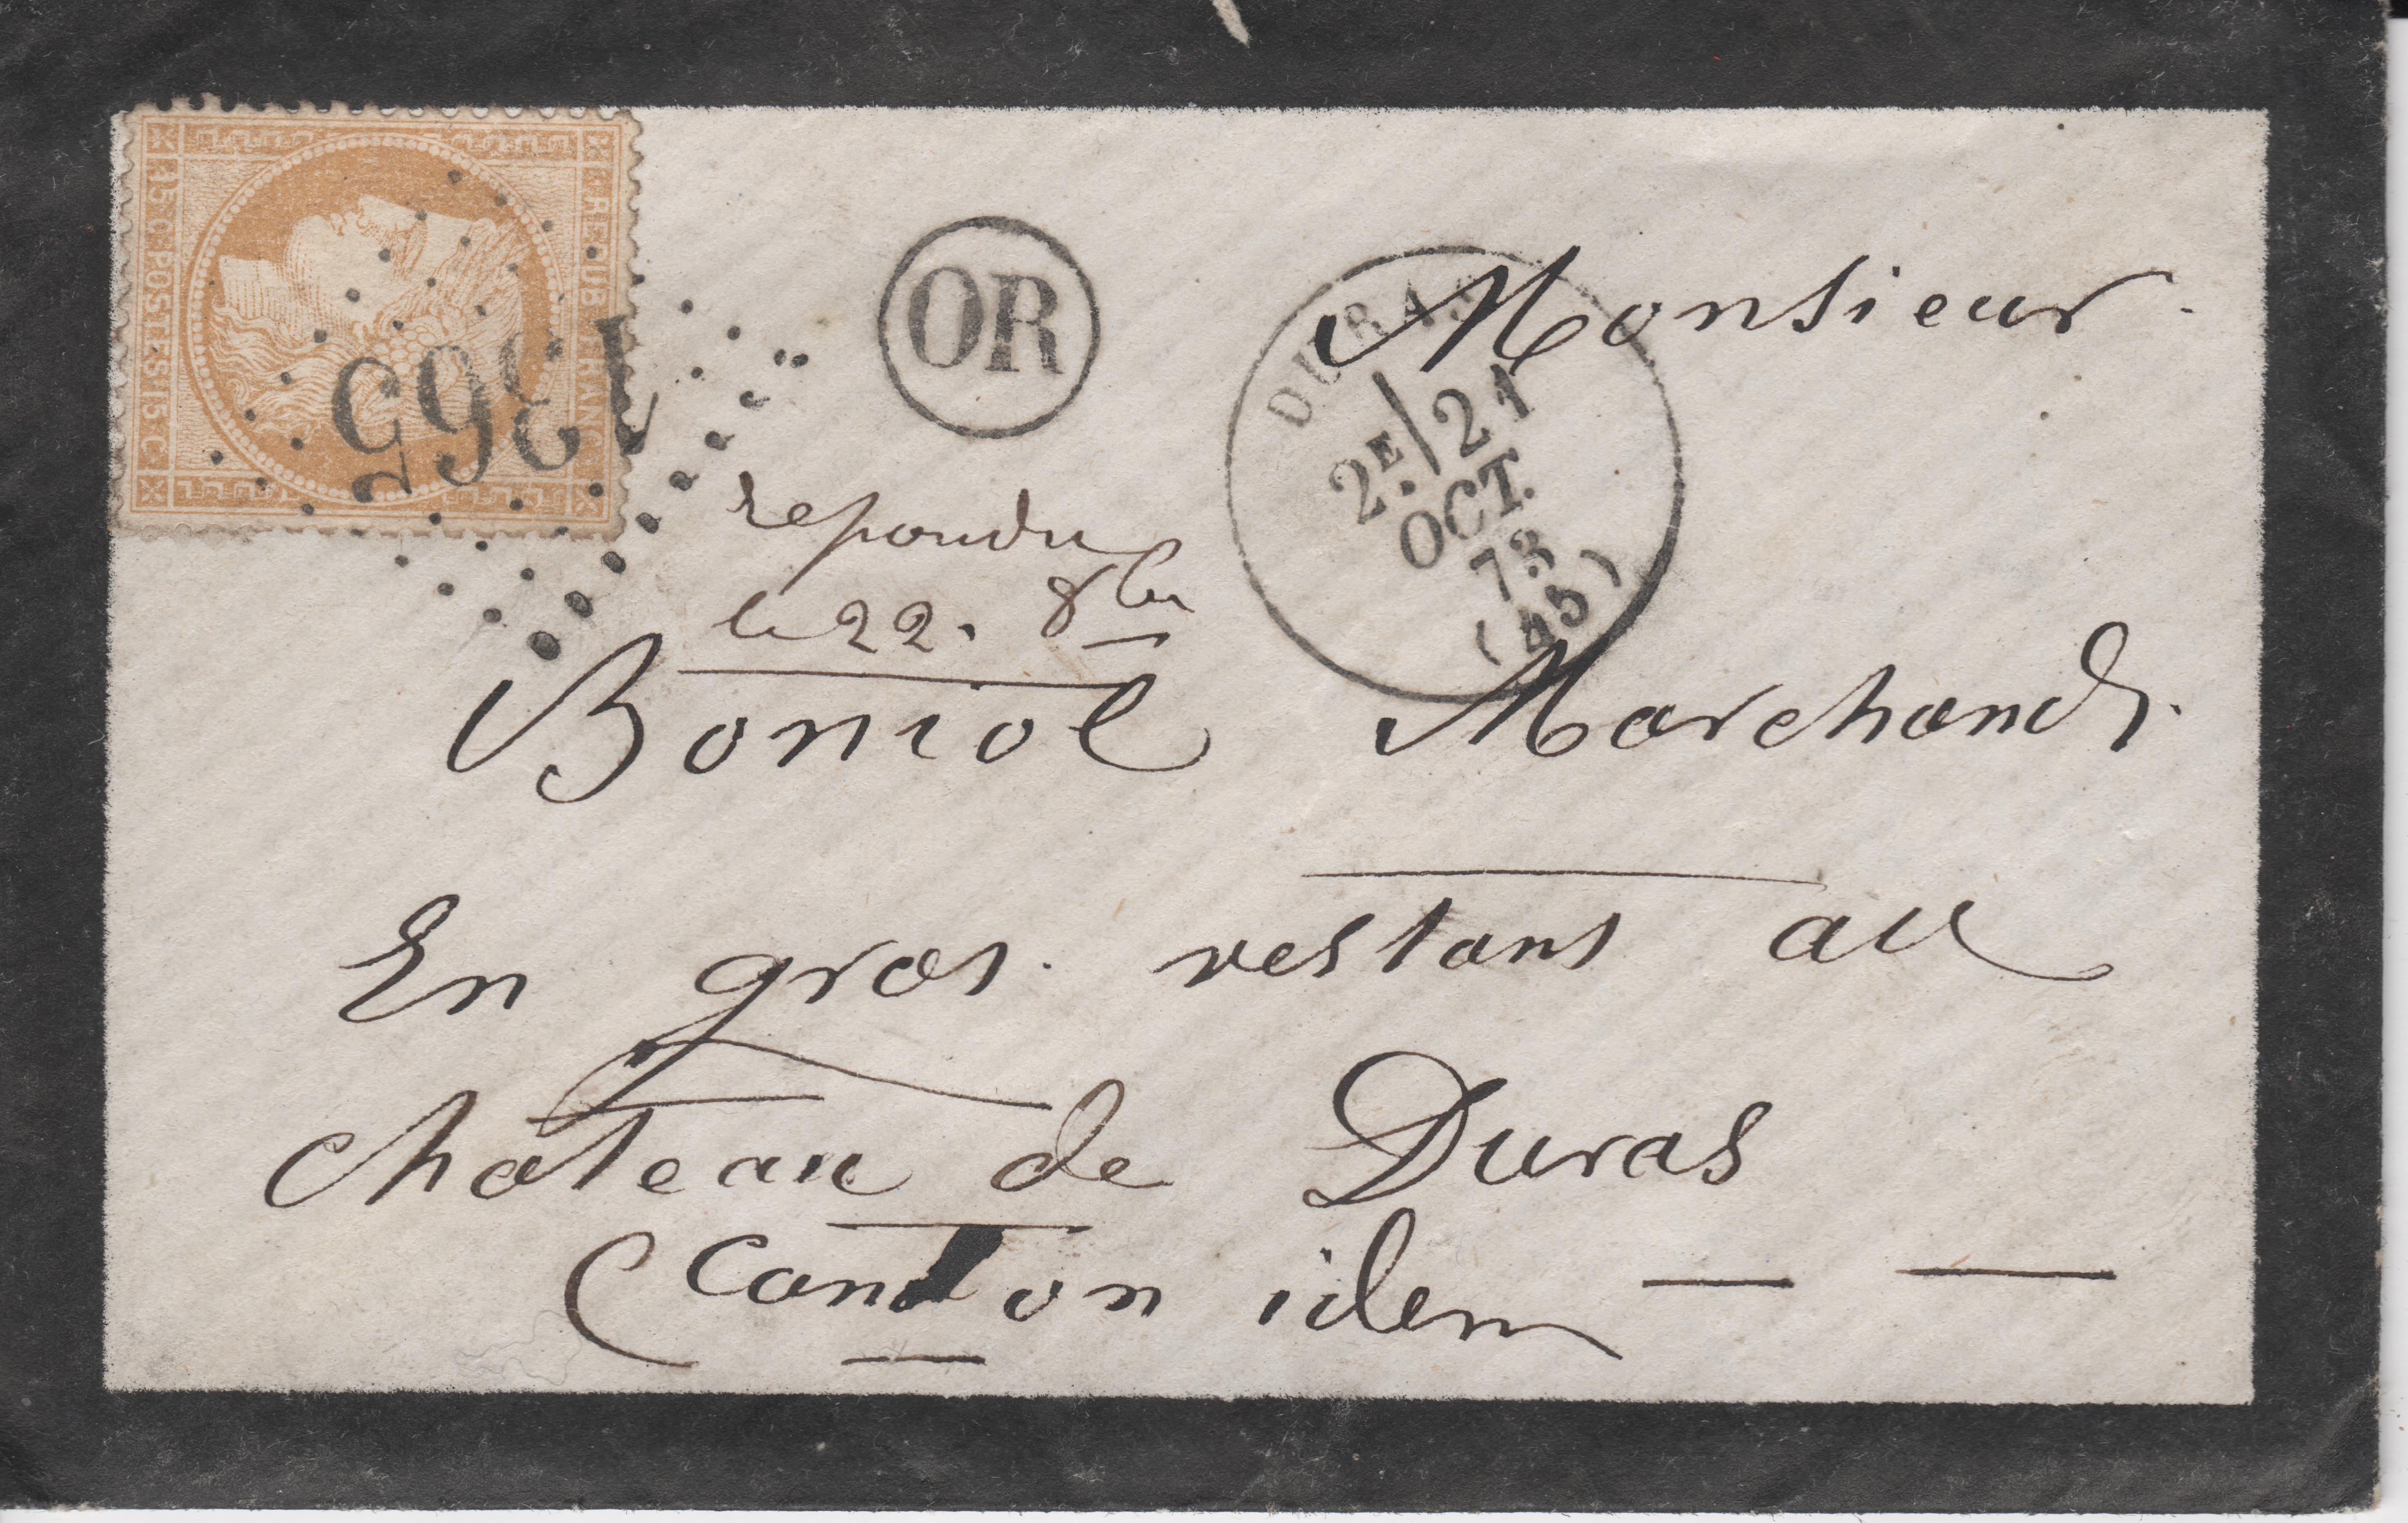 REPUB. FRANC.
15 C. POSTES 15 C.
1365
OR
DURAS
2E/21
OCT.
73
(45)
repondu
le 22. 8bre
Monsieur
Boniol Marchand
En gros restant au
chateau de Duras
Canton idem